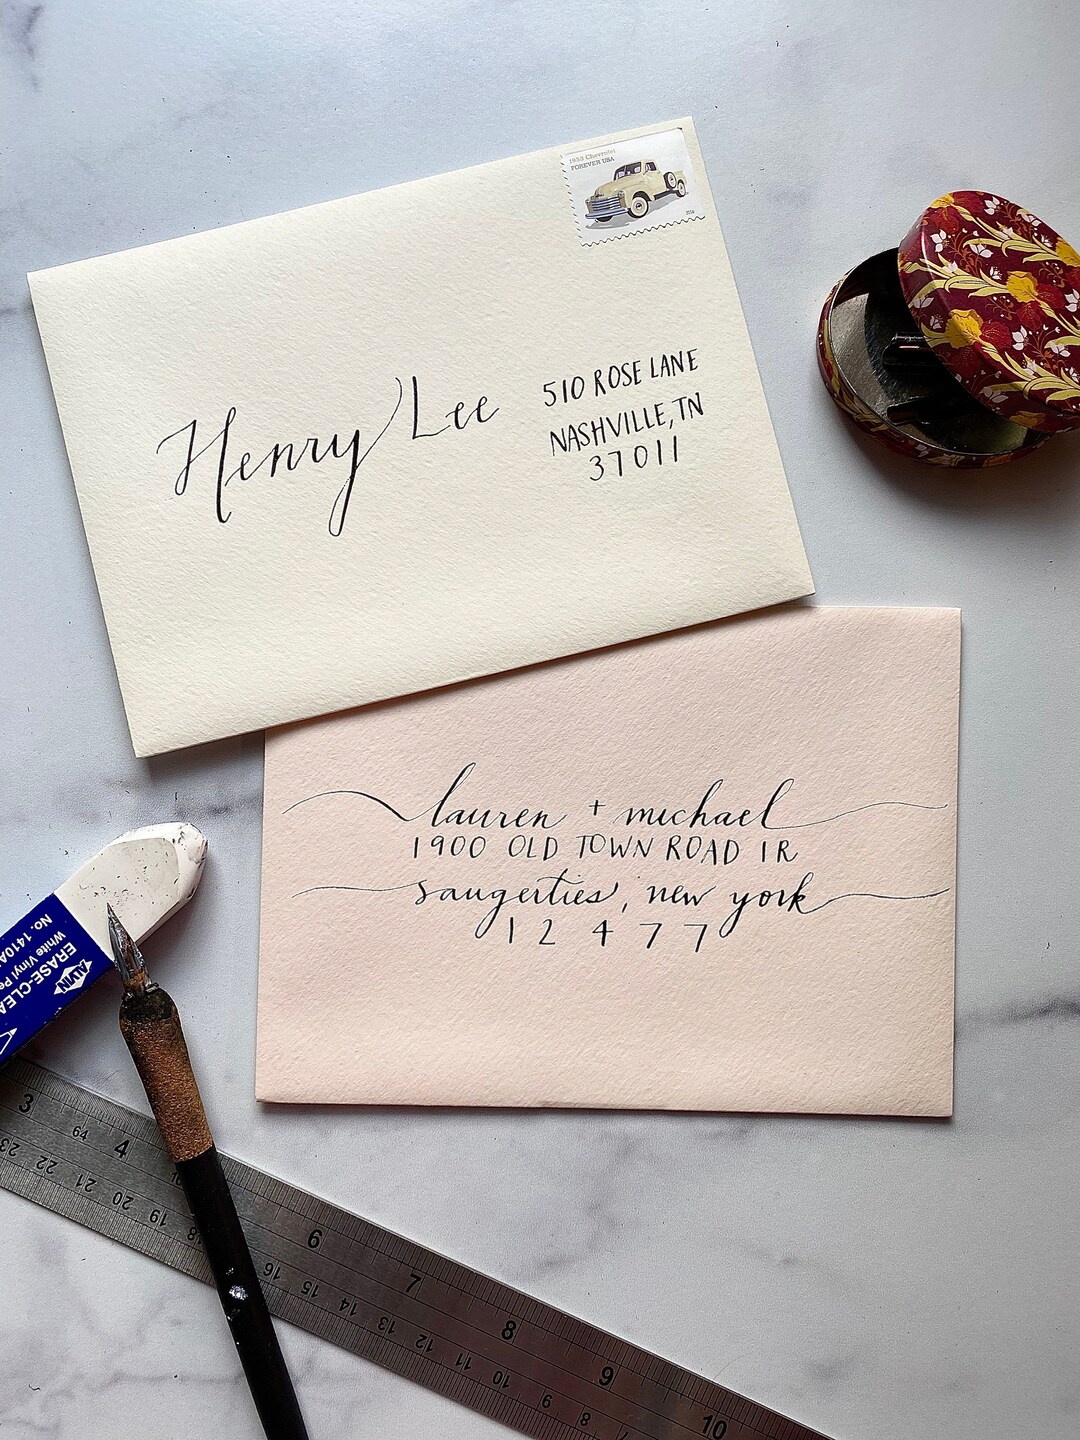 1953 Chevrolet
FOREVER USA
Henry Lee
510 ROSE LANE
NASHVILLE, TN
37011
lauren + michael
1900 OLD TOWN ROAD 1R
saugerties, new york
12477
ALVIN
ERASE-CLEA
White Vinyl Pe
No. 1410A
3 4 6 7 8 9 10
64
23 22 21 20 19 18 16 15 14 13 12 11 10 9 8 7